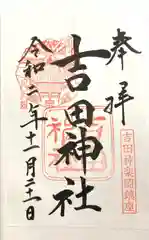 奉拝
吉田神楽岡鎮座
吉田神社
令和二年十一月二十一日